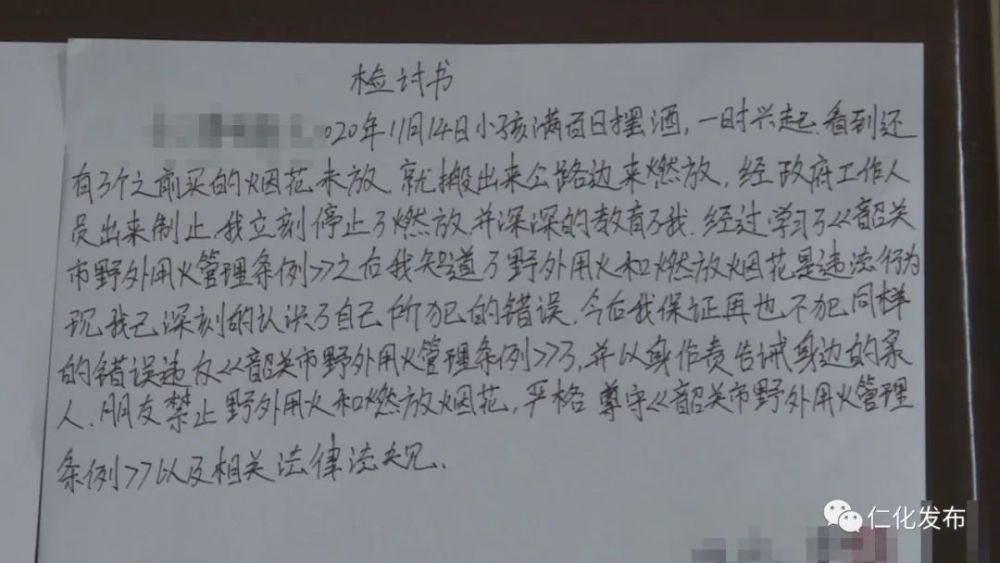 检讨书
020年11月14日小孩满百日摆酒,一时兴起.看到还
有了个之前买的烟花未放 就搬出来公路边来燃放,经政府工作人
员出来制止.我立刻停止了燃放并深深的教育了我.经过学习了《韶关
市野外用火管理条例》之后我知道了野外用火和燃放烟花是违法行为
现我已深刻的认识了自己所犯的错误.今后我保证再也不犯同样
的错误违反《韶关市野外用火管理条例》了,并以身作责告诫身边的家
人.朋友禁止野外用火和燃放烟花,严格尊守《韶关市野外用火管理
条例》以及相关法律法规.
仁化发布